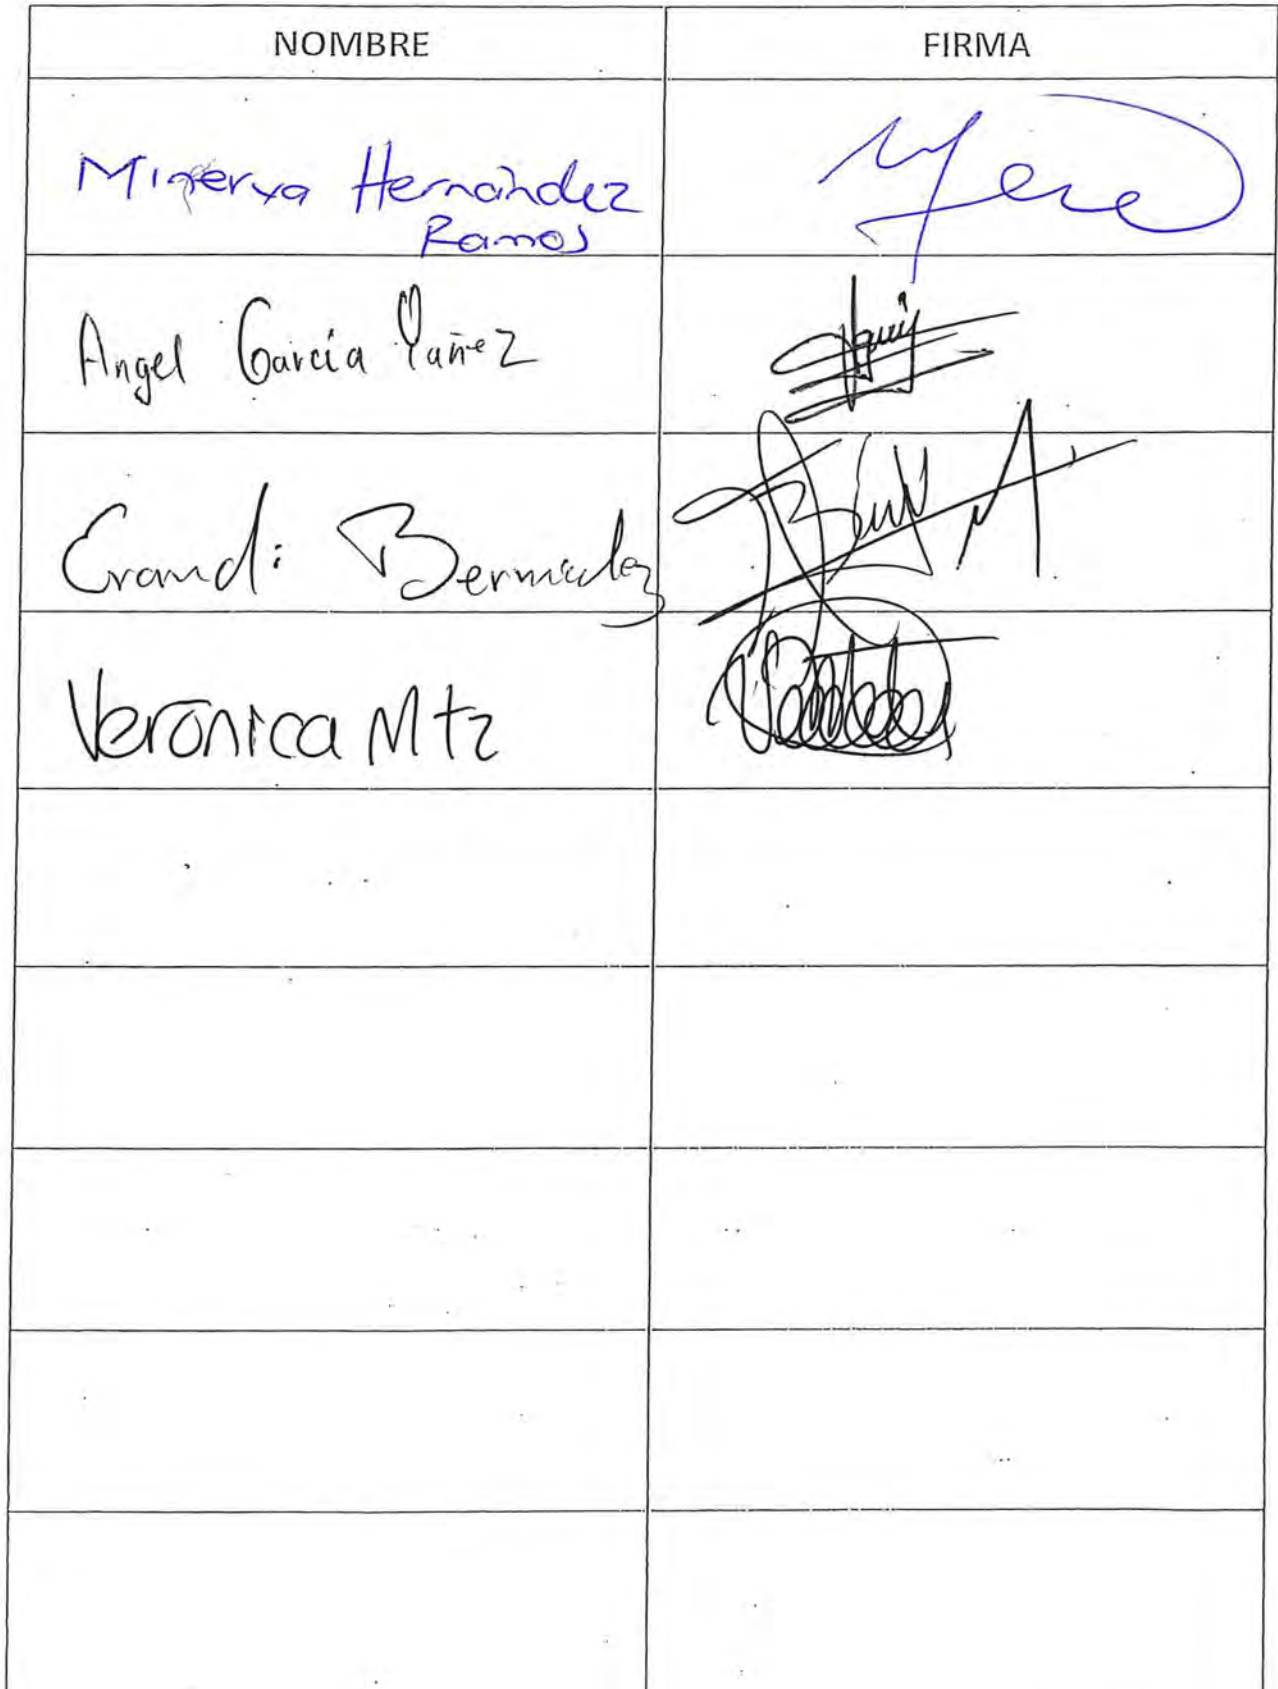 NOMBRE FIRMA
Minerva Hernández
Ramos
Angel García Yañez
Erandi Bermudez
Verónica Mtz